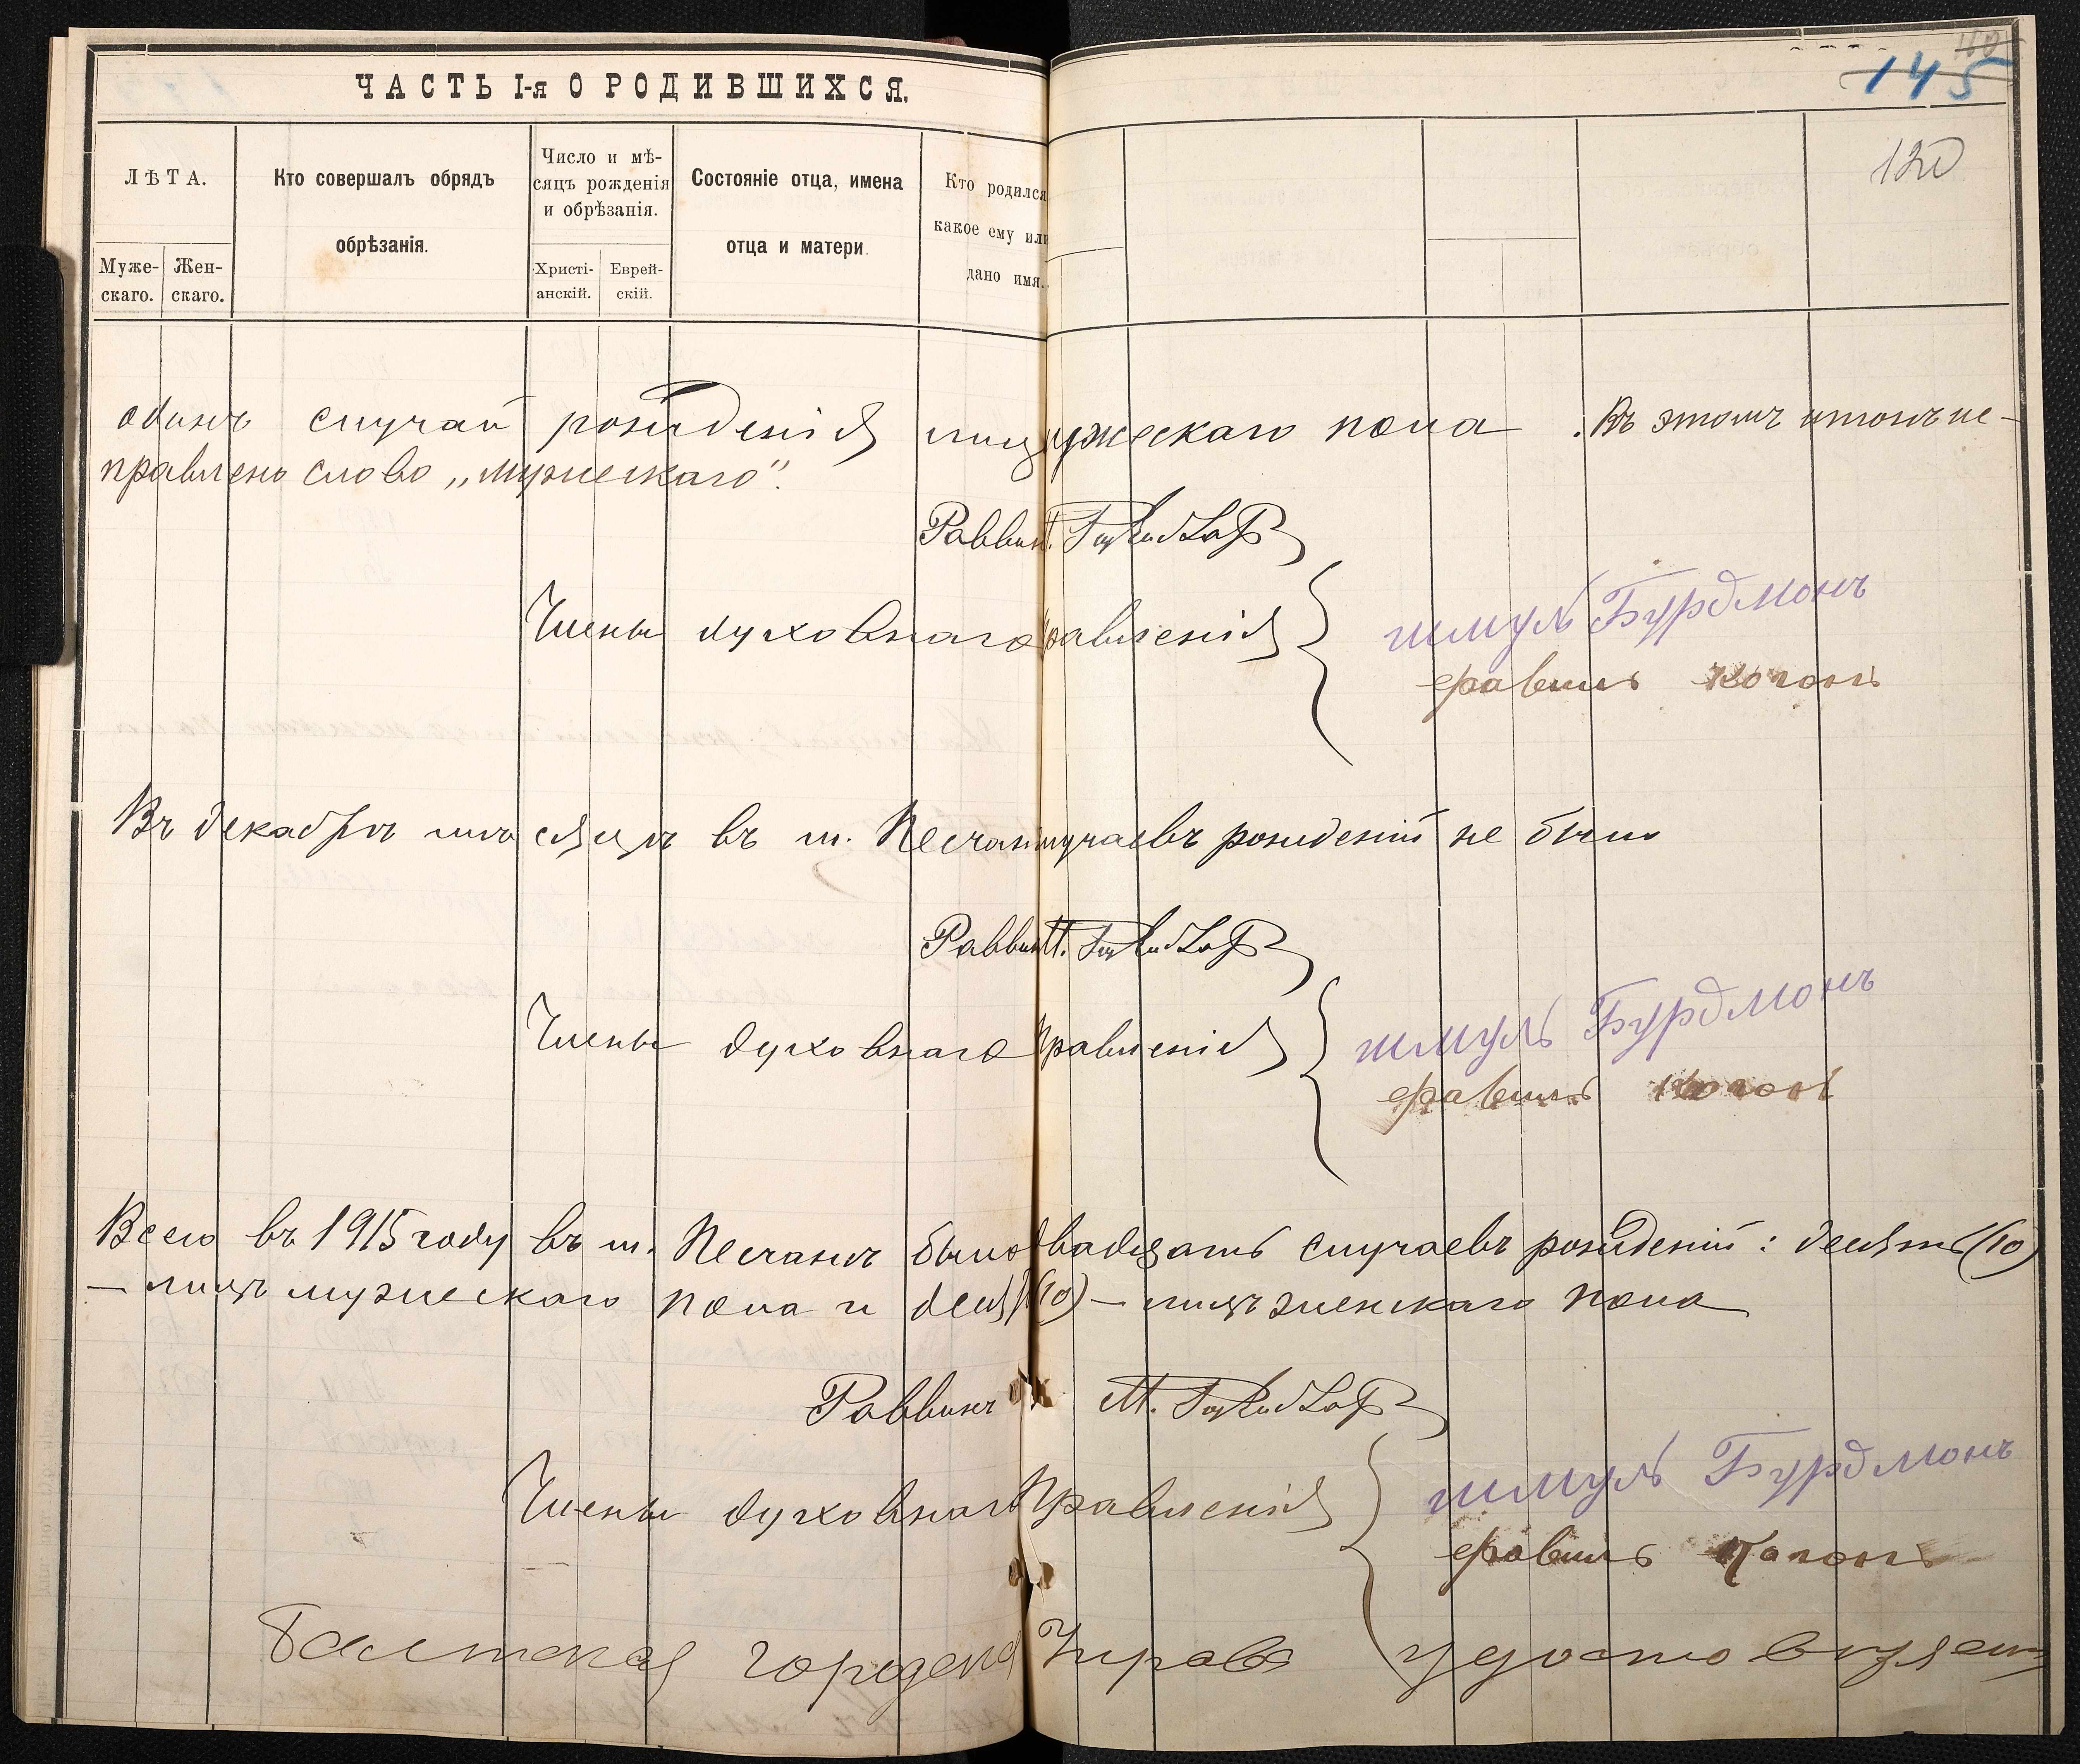 ЧАСТЬ I-я О РОДИВШИХСЯ.
145
120
ЛѢТА.
Муже-
скаго.
Жен-
скаго.
Кто совершалъ обрядъ
обрѣзанія.
Число и мѣ-
сяцъ рожденія
и обрѣзанія.
Христі-
анскій.
Еврей-
скій.
Состояніе отца, имена
отца и матери
Кто родился
какое ему или
дано имя.
одинъ случай рожденія лицъ мужескаго пола. Въ этомъ итогѣ ис-
правлено слово „мужескаго".
Раввинъ
Члены духовнаго правленія { шмуль Бурдмонъ
Когонъ
Въ декабрѣ мѣсяцѣ въ м. Песчанѣ случаевъ рожденій не было
Раввинъ М.
Члены духовнаго правленія { шмуль Бурдмонъ
Когонъ
Всего въ 1915 году въ м. Песчанѣ было двадцать случаевъ рожденій: десять (10)
— лицъ мужескаго пола и десять (10) — лицъ женскаго пола
Раввинъ М.
Члены духовнаго Правленія { шмуль Бурдмонъ
Когонъ
Балтская Городская Управа удостовѣряетъ